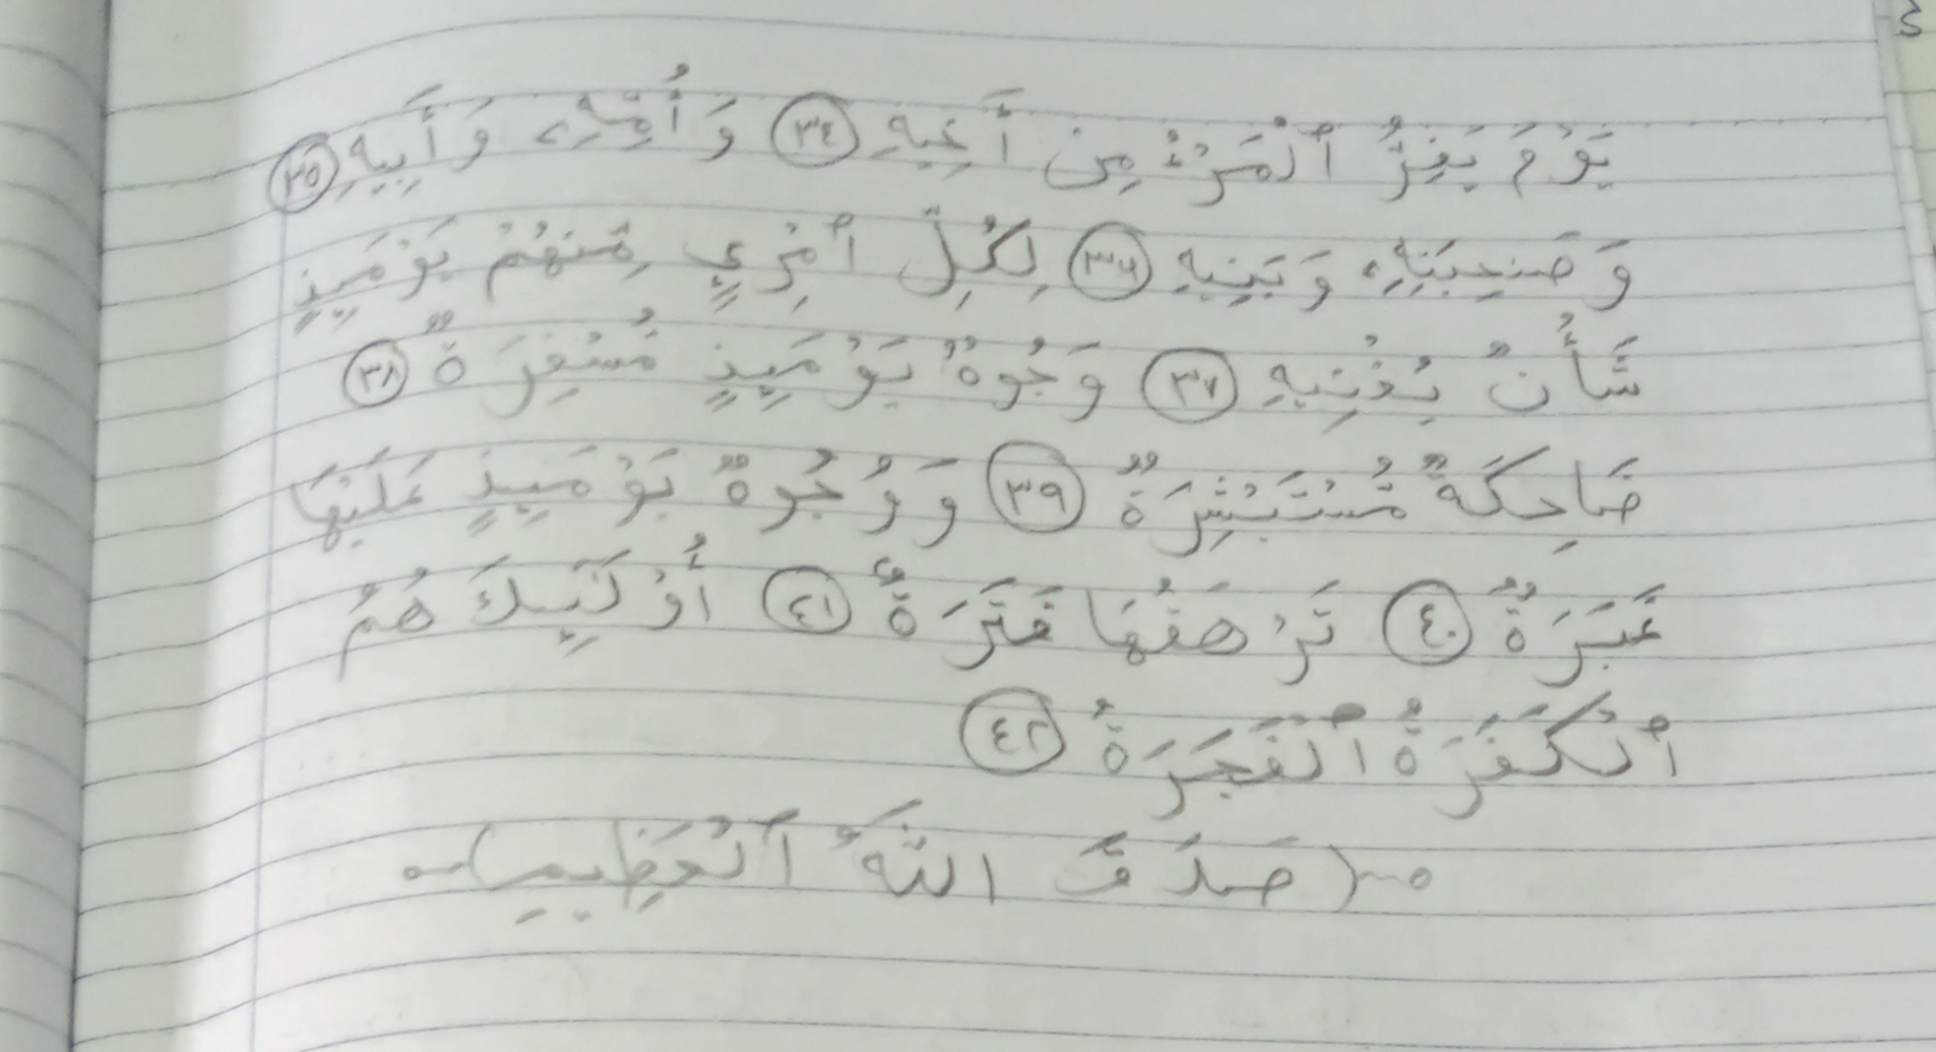 يَوْمَ يَفِرُّ ٱلْمَرْءُ مِنْ أَخِيهِ ٣٤ وَأُمِّهِۦ وَأَبِيهِ ٣٥
وَصَٰحِبَتِهِۦ وَبَنِيهِ ٣٦ لِكُلِّ ٱمْرِيٍٕ مِّنْهُمْ يَوْمَئِذٍ
شَأْنٌ يُغْنِيهِ ٣٧ وُجُوهٌ يَوْمَئِذٍ مُّسْفِرَةٌ ٣٨
ضَاحِكَةٌ مُّسْتَبْشِرَةٌ ٣٩ وَوُجُوهٌ يَوْمَئِذٍ عَلَيْهَا
غَبَرَةٌ ٤٠ تَرْهَقُهَا قَتَرَةٌ ٤١ أُوْلَٰٓئِكَ هُمُ
ٱلْكَفَرَةُ ٱلْفَجَرَةُ ٤٢
(صَدَقَ اللَّهُ ٱلْعَظِيمِ)